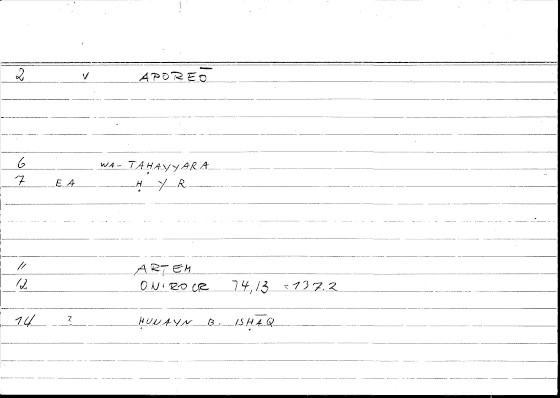 2 v APOREŌ
6 WA-TAḤAYYARA
7 EA Ḥ Y R
11 ARTEM
12 ONIROCR 74,13 =137.2
14 ? ḤUNAYN B. ISḤĀQ